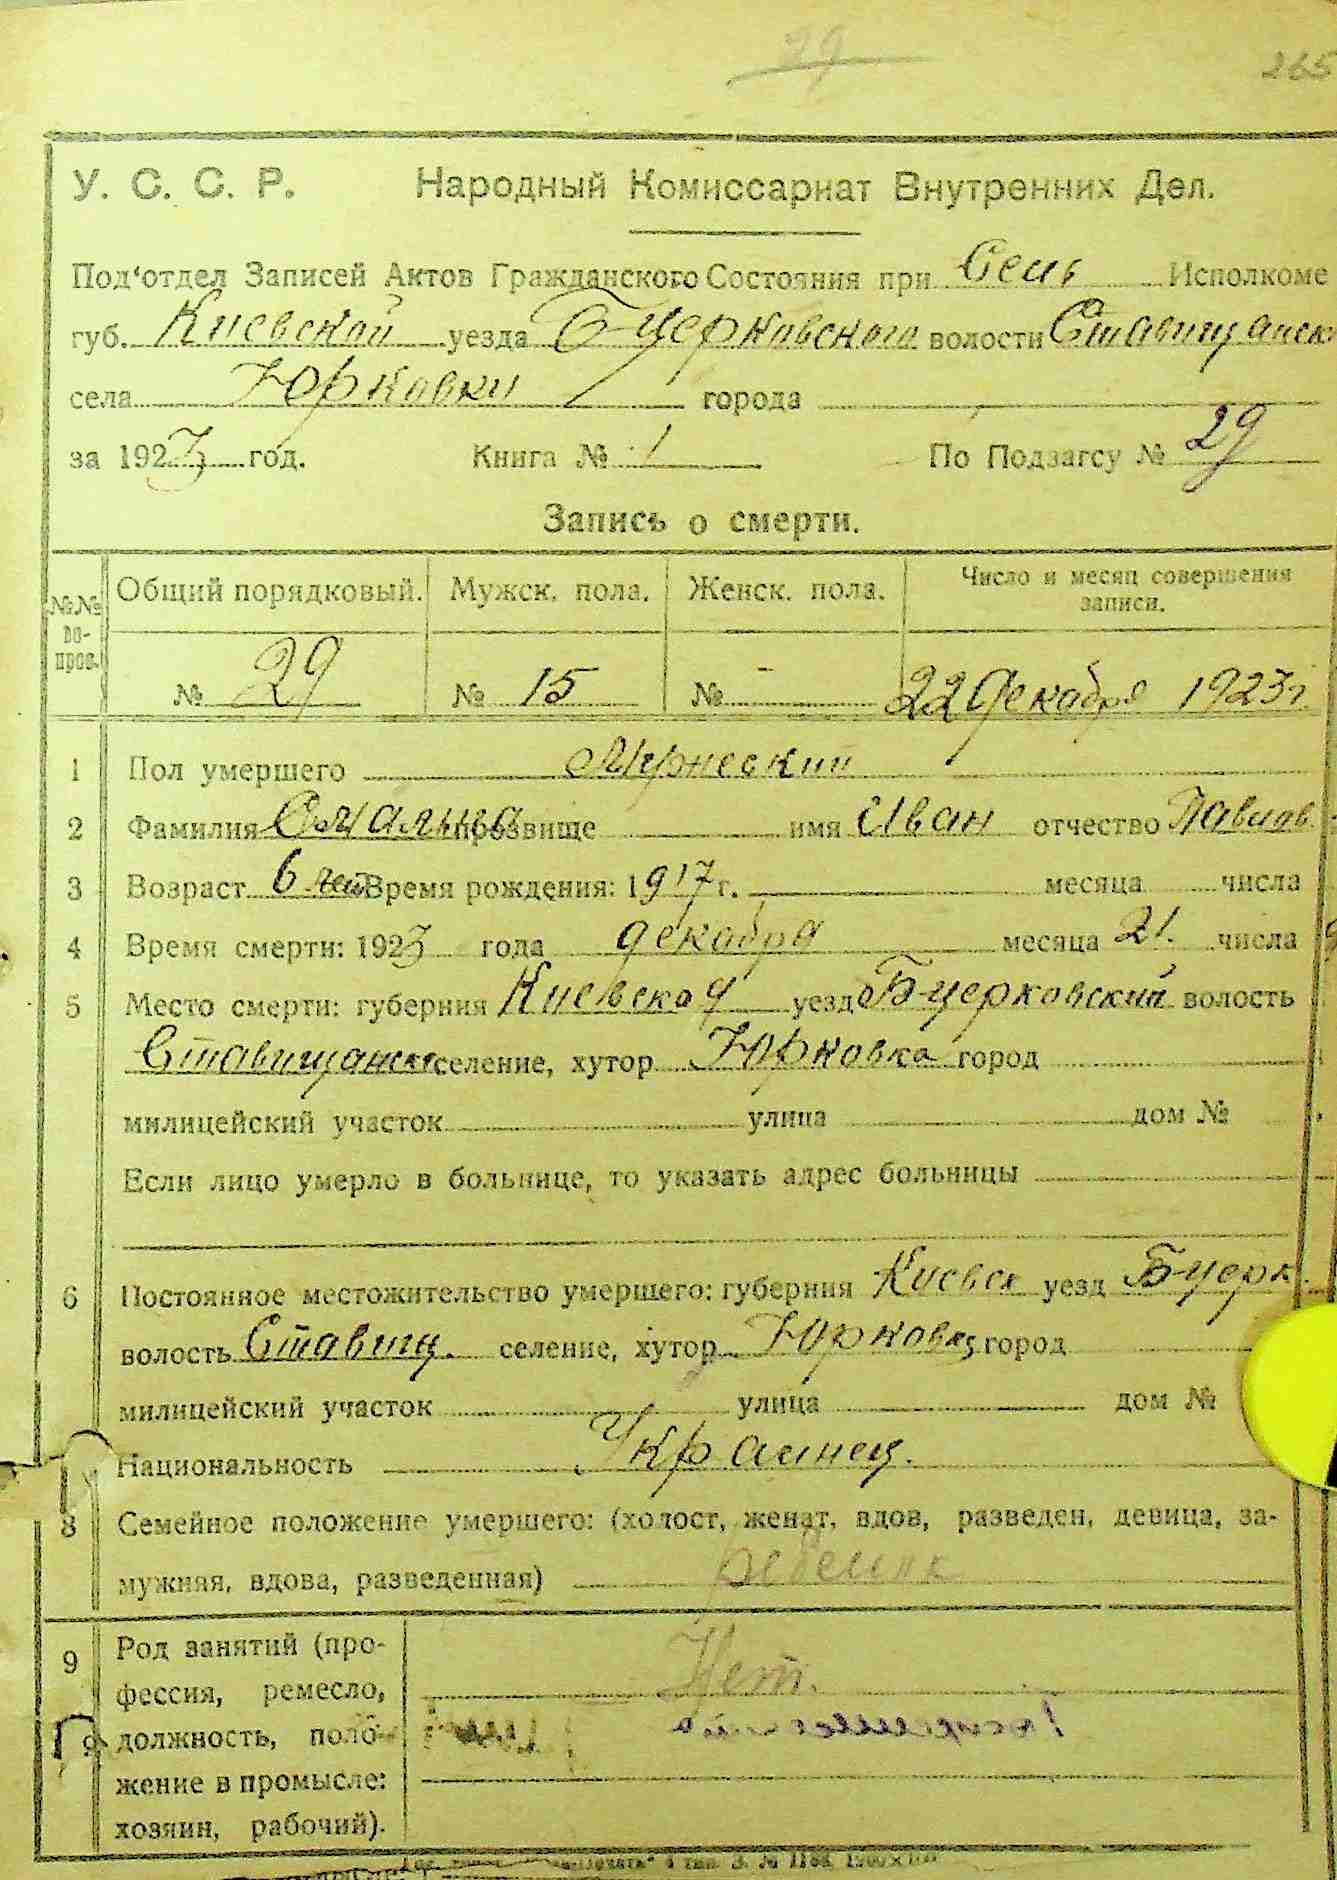 29
265
У. С. С. Р. Народный Комиссариат Внутренних Дел.
Под‘отдел Записей Актов Гражданского Состояния при Сель Исполкоме
губ. Киевской уезда Б-церковского волости Ставищанск
села Юрковки города
за 1923 год. Книга № 1 По Подзагсу № 29
Запись о смерти.
№№ во-прос. Общий порядковый. Мужск. пола. Женск. пола. Число и месяц совершения записи.
№ 29 № 15 № - 22 Декабря 1923 г.
1 Пол умершего
2 Фамилия прозвище имя Иван отчество
3 Возраст 6 лет Время рождения: 1917 г. месяца числа
4 Время смерти: 1923 года декабря месяца 21. числа
5 Место смерти: губерния Киевская уезд Б-церковский волость
Ставищанск селение, хутор Юрковка город
милицейский участок улица дом №
Если лицо умерло в больнице, то указать адрес больницы
6 Постоянное местожительство умершего: губерния Киевск уезд Б-церк.
волость Ставищ. селение, хутор Юрковка город
милицейский участок улица дом №
Национальность Украинец.
8 Семейное положение умершего: (холост, женат, вдов, разведен, девица, за-
мужняя, вдова, разведенная) ребенок
9 Род занятий (про- Нет.
фессия, ремесло,
должность, поло-
жение в промысле:
хозяин, рабочий).